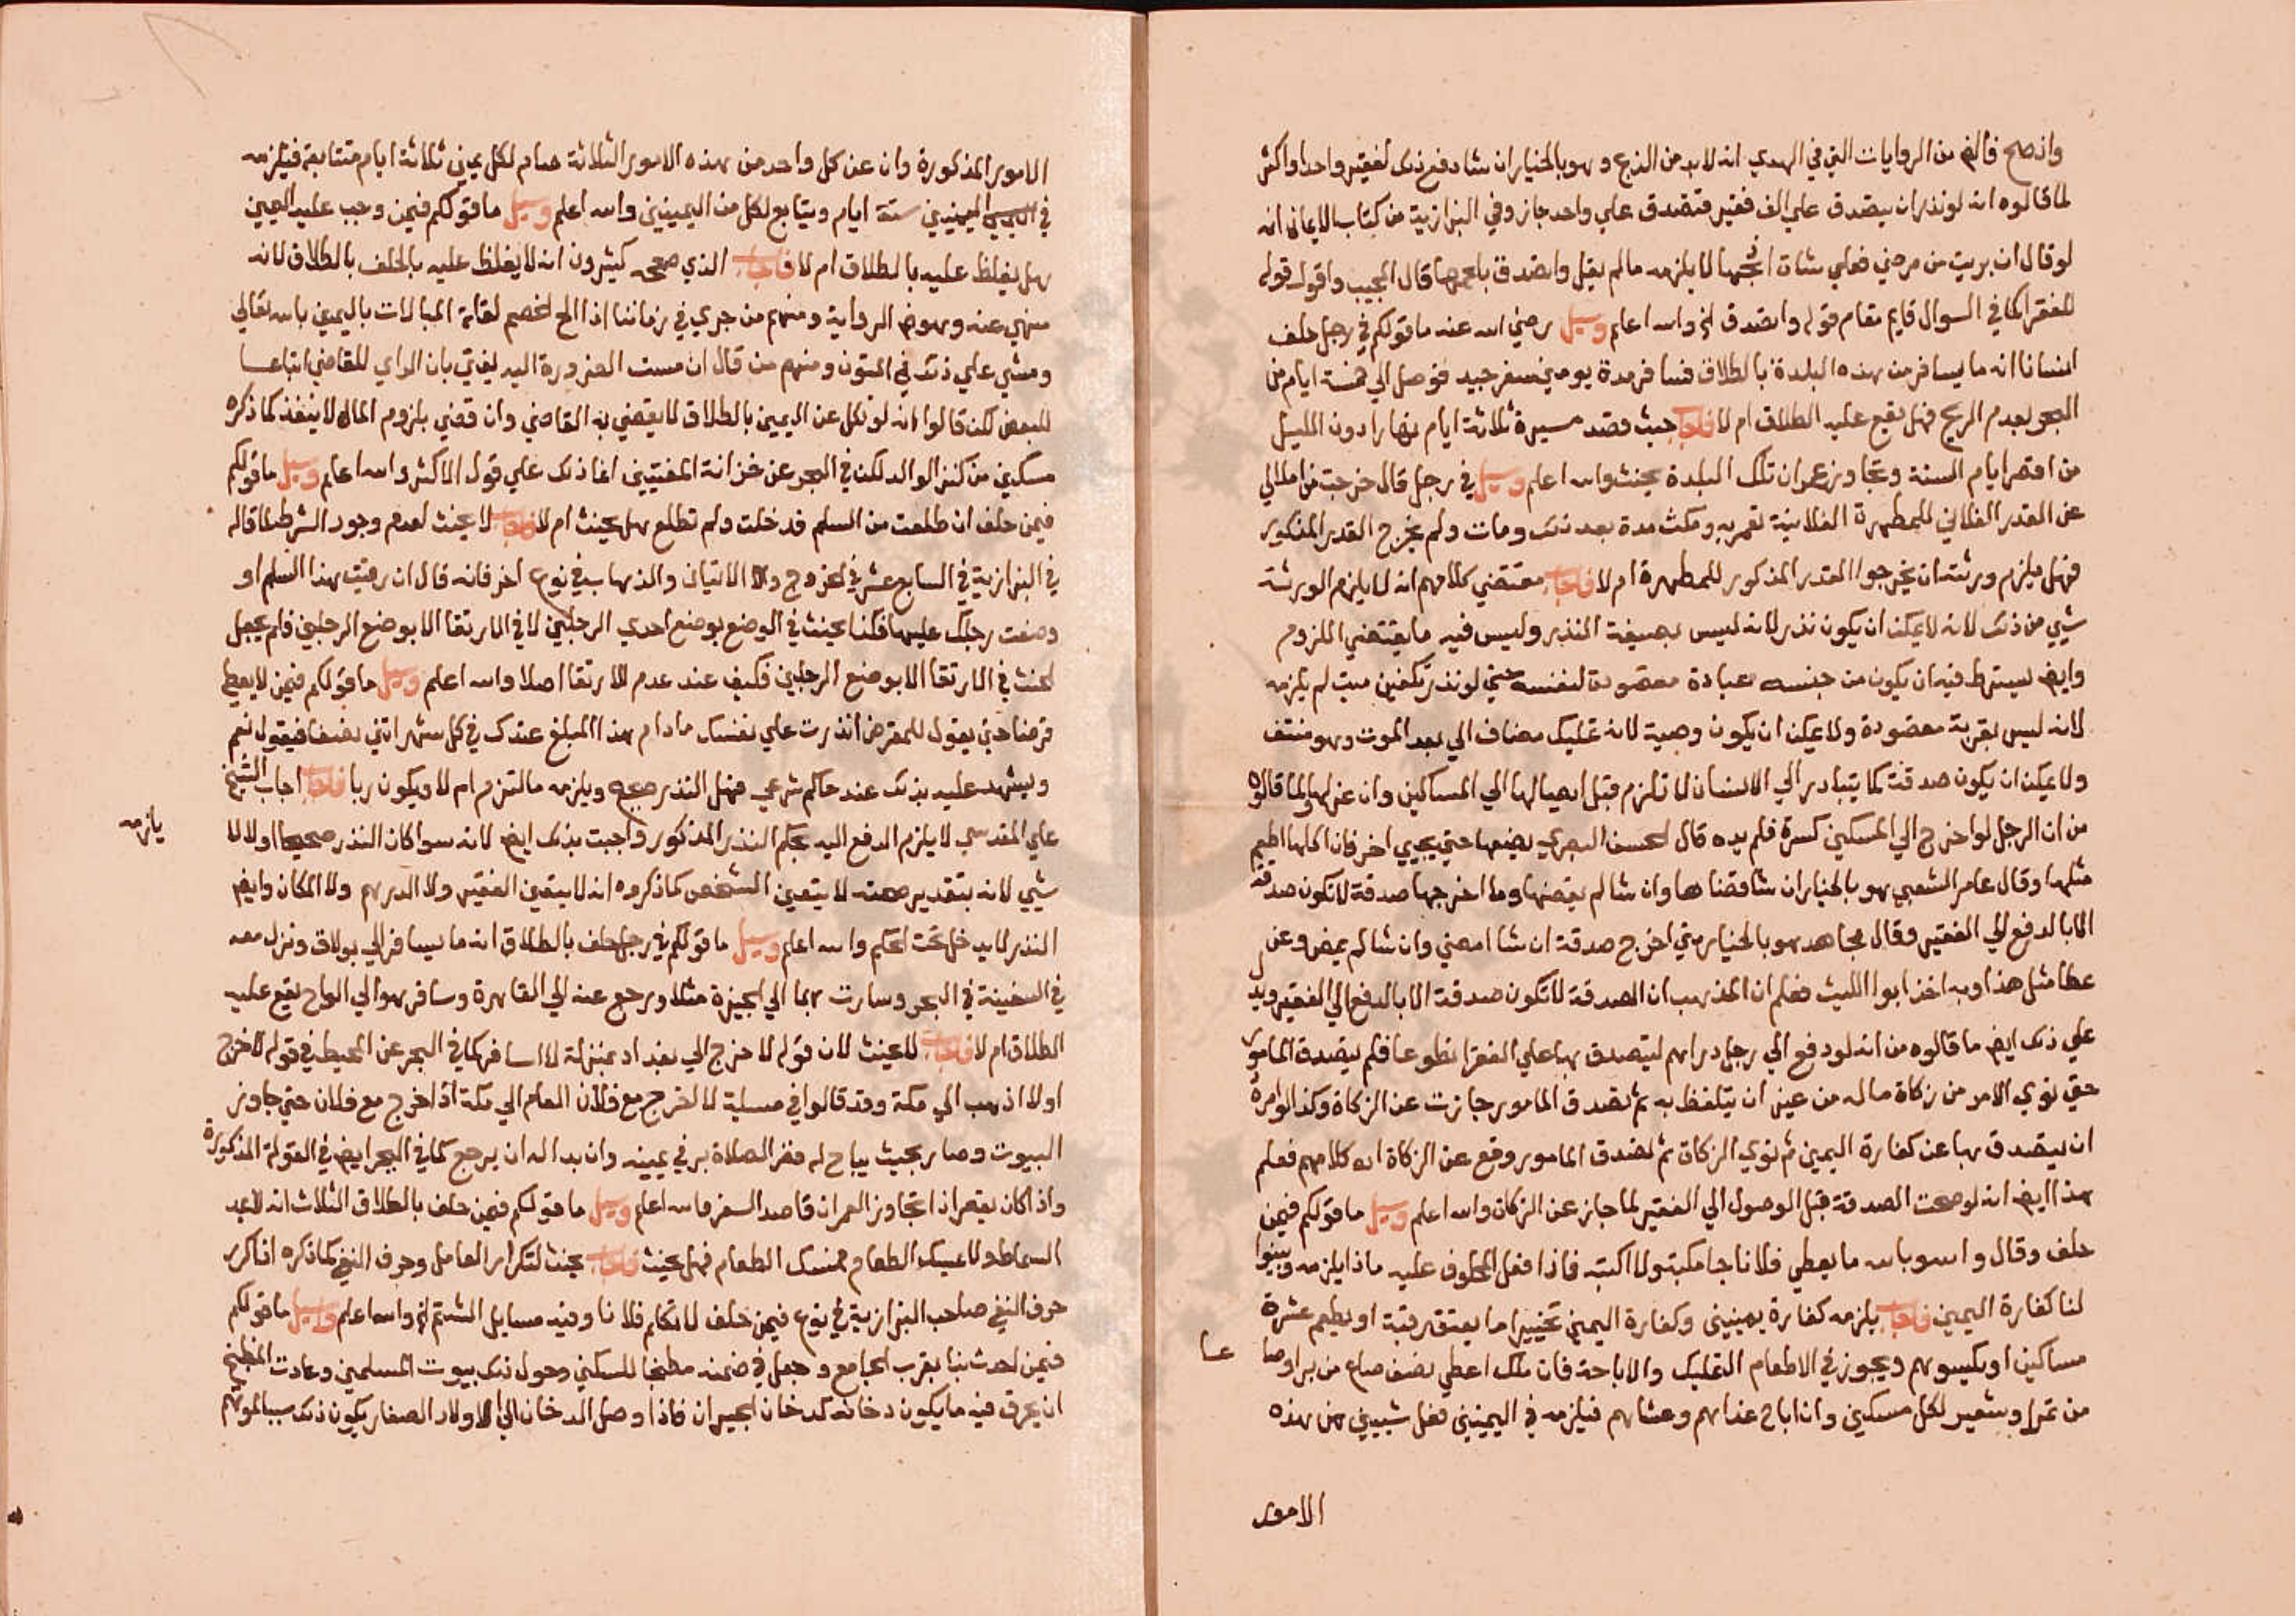 واذ صح فالفر من الروايات التي في الهدي انه لابد من الذبح وهو بالخيار ان شا دفع ذلك لفقير واحد او اكثر
لما قالوه انه لو نذر ان يتصدق علي الف فقير فتصدق علي واحد جاز وفي البزازية من كتاب الايمان انه
لو قال ان بريت من مرضي فعلي شاة اذبحها لا يلزمه ما لم يقل واتصدق بلحمها قال المجيب واقول قوله
للفقرا كما في السوال قايم مقام قوله واتصدق الخ والله اعلم وسيل رضي الله عنه ما قولكم في رجل حلف
انسانا انه ما يسافر من هذه البلدة بالطلاق فسافر مدة يومين سفر جيد فوصل الي خمسة ايام من
البحر لعدم الريح فهل يقع عليه الطلاق ام لا فاجاب حيث قصد مسيرة ثلاثة ايام نهارا دون الليل
من اقصر ايام السنة وتجاوز عمران تلك البلدة يحنث والله اعلم وسيل في رجل قال خرجت من مالي
عن القدر الفلاني للمطهرة الفلانية تعمر به ومكث مدة بعد ذلك ومات ولم يخرج القدر المذكور
فهل يلزم ورثته ان يخرجوا القدر المذكور للمطهرة ام لا فاجاب مقتضي كلامهم انه لا يلزم الورثة
شيي من ذلك لانه لا يمكن ان يكون نذر لانه ليس بصيغة النذر وليس فيه ما يقتضي اللزوم
وايضا يشترط فيه ان يكون من جنسه عبادة مقصودة لنفسه حتي لو نذر تكفين ميت لم يلزمه
لانه ليس بقربة مقصودة ولا يمكن ان يكون وصية لانه تمليك مضاف الي بعد الموت وهو منتف
ولا يمكن ان يكون صدقة كما يتبادر الي الانسان لا تلزم قبل ايصالها الي المساكين وان عزلها ولما قالوه
من ان الرجل لو اخرج الي المسكين كسرة فلم يده قال الحسن البصري يضعها حتي يجيي اخر فان اكلها اطعم
مثلها وقال عامر الشعبي هو بالخيار ان شا قضاها وان شا لم يقضها وما اخرجها صدقة لا تكون صدقة
الا بالدفع الي الفقير وقال مجاهد هو بالخيار متي اخرج صدقة ان شا امضي وان شا لم يمض وعن
عطا مثل هذا وبه اخذ ابوا الليث فعلم ان المذهب ان الصدقة لا تكون صدقة الا بالدفع الي الفقير ويدل
علي ذلك ايضا ما قالوه من انه لو دفع الي رجل دراهم ليتصدق بها علي الفقرا تطوعا فلم يتصدق المامور
حتي نوي الامر من زكاة ماله من غير ان يتلفظ به ثم تصدق المامور جازت عن الزكاة وكذا لو امره
ان يتصدق بها عن كفارة اليمين ثم نوي الزكاة ثم تصدق المامور وقع عن الزكاة اه كلامهم فعلم
بهذا ايضا انه لو صحت الصدقة قبل الوصول الي الفقير لما جاز عن الزكاة والله اعلم وسيل ما قولكم فيمن
حلف وقال والله وبالله ما يعطي فلانا جامكيته ولا اكتبه فاذا فعل المحلوف عليه ماذا يلزمه وبينوا
لنا كفارة اليمين فاجاب يلزمه كفارة يمينين وكفارة اليمين تخييرا ما يعتق رقبة او يطعم عشرة
مساكين او يكسوهم ويجوز في الاطعام التمليك والاباحة فان ملك اعطي نصف صاع من بر او صا عا
من تمر او شعير لكل مسكين وان اباح غداهم وعشاهم فيلزمه في اليمينين فعل شيين من هذه
الامور
الامور المذكورة وان عن كل واحد من هذه الامور الثلاثة صام لكل يمين ثلاثة ايام متتابعة فيلزمه
في اليمينين ستة ايام ويتابع لكل من اليمينين والله اعلم وسيل ما قولكم فيمن وجب عليه اليمين
هل يغلظ عليه بالطلاق ام لا فاجاب الذي صححه كثيرون انه لا يغلظ عليه بالحلف بالطلاق لانه
منهي عنه وهو ضر الرواية ومنهم من جري في زماننا اذا الح الخصم لقلة المبالات باليمين بالله تعالي
ومشي علي ذلك في المتون ومنهم من قال ان مست الضرورة اليه يفتي بان الراي للقاضي اتباعا
للبعض لكن قالوا انه لو نكل عن اليمين بالطلاق لا يقضي به القاضي وان قضي بلزوم المال لا ينفذ كما ذكره
مسكين من كنز الوالد لكن في البحر عن خزانة المفتيين انما ذلك علي قول الاكثر والله اعلم وسيل ما قولكم
فيمن حلف ان طلعت من السلم فدخلت ولم تطلع هل يحنث ام لا فاجاب لا يحنث لعدم وجود الشرط لما قاله
في البزازية في السابع عشر في الخروج والاتيان والذهاب في نوع اخر فانه قال ان رقيت هذا السلم او
وضعت رجلك عليها فكنا يحنث في الوضع بوضع احدي الرجلين لا في الارتقا الا بوضع الرجلين فلم يجعل
الحنث في الارتقا الا بوضع الرجلين فكيف عند عدم الارتقا اصلا والله اعلم وسيل ما قولكم فيمن لا يعطي
قرضا حتي يقول للمقرض انذرت علي نفسك مادام هذا المبلغ عندك في كل شهر اتني نصفا فيقول نعم
ويشهد عليه بذلك عند حاكم شرعي فهل النذر صحيح ويلزمه ما التزم ام لا ويكون ربا فاجاب اجاب الشيخ
علي المقدسي لا يلزم الدفع اليه بحكم النذر المذكور واجبت بذلك ايضا لانه سوا كان النذر صحيحا اولا لا يلزمه
شيي لانه بتقدير صحته لا يتعين الشخص كما ذكروه انه لا يتعين الفقير ولا الدرهم ولا المكان وايضا
النذر لا يدخل تحت الحكم والله اعلم وسيل ما قولكم في رجل حلف بالطلاق انه ما يسافر الي بولاق ونزل معه
في السفينة في البحر وسارت بهما الي الجيزة مثلا ورجع عنه الي القاهرة وسافر هو الي الواح يقع عليه
الطلاق ام لا فاجاب لا يحنث لان قوله لا خرج الي بغداد بمنزلة لا اسافر كما في البحر عن المحيط في قوله لا خرج
اولا اذهب الي مكة وقد قالوا في مسيلة لا اخرج مع فلان العام الي مكة اذا خرج مع فلان حتي جاوز
البيوت وصار بحيث يباح له قصر الصلاة بر في يمينه وان بدا له ان يرجع كما في البحر ايضا في القولة المذكورة
واذا كان بقصر اذا تجاوز العمران قاصد السفر والله اعلم وسيل ما قولكم فيمن حلف بالطلاق الثلاث انه لا يمد
السماط ولا عيسك الطعام فمسك الطعام فهل يحنث فاجاب يحنث لتكرار العامل وحرف النفي كما ذكره اذا كرر
حرف النفي صاحب البزازية في نوع فيمن حلف لا اكلم فلانا وفيه مسايل الشتم الخ والله اعلم وسيل ما قولكم
فيمن احدث بنا بقرب الجامع وجعل في ضمنه مطبخا للسكني وحول ذلك بيوت المسلمين وعادت المطبخ
ان يحرق فيه ما يكون دخانه كدخان الجيران فاذا وصل الدخان الي الاولاد الصغار يكون ذلك سببا لموتهم